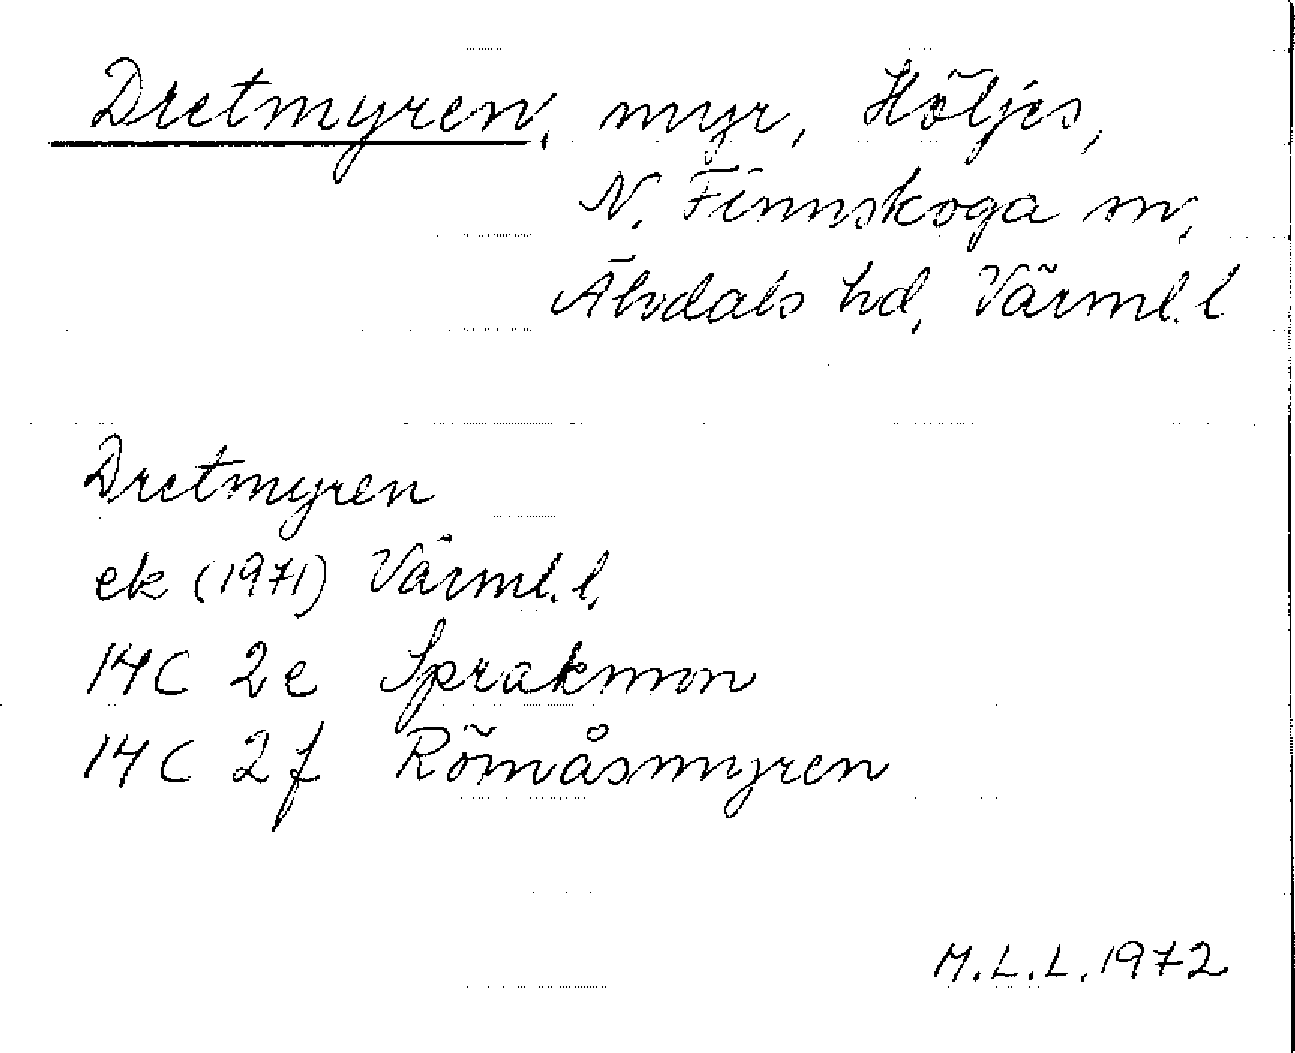 Dretmyren, myr, Höljes,
N. Finnskoga sn,
Älvdals hd, Värml. l
Dretmyren
ek (1971) Värml. l.
14C 2e Sprakmon
14C 2f Römåsmyren
M.L.L. 1972